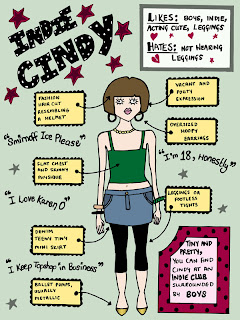 INDIE
CINDY
LIKES: BOYS, INDIE,
ACTING CUTE, LEGGINGS
HATES: NOT WEARING
LEGGINGS
FASHION
HAIR CUT
RESEMBLING
A HELMET
VACANT AND
POUTY
EXPRESSION
OVERSIZED
HOOPY
EARRINGS
"Smirnoff Ice Please"
"I'm 18, Honestly"
FLAT CHEST
AND SKINNY
PHYSIQUE
LEGGINGS OR
FOOTLESS
TIGHTS
"I Love Karen O"
DENIM
TEENY TINY
MINI SKIRT
"I Keep Topshop in Business"
BALLET PUMPS,
USUALLY
METALLIC
TINY AND
PRETTY,
YOU CAN FIND
CINDY AT AN
INDIE CLUB
SURROUNDED
BY BOYS